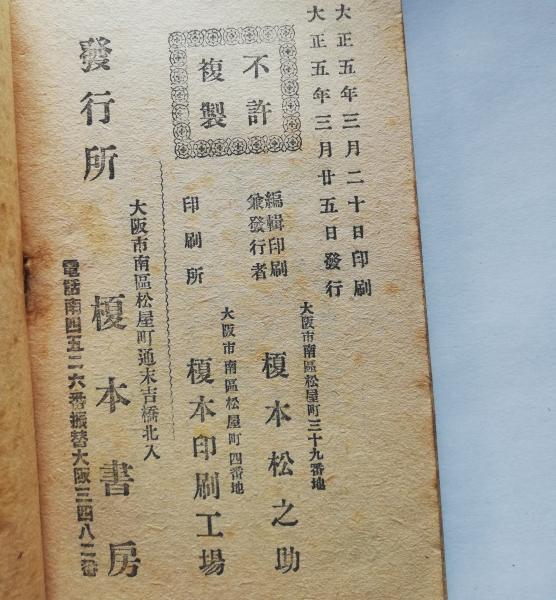 大正五年三月二十日印刷
大正五年三月廿五日發行
不許
複製
編輯印刷
兼發行者
大阪市南區松屋町三十九番地
榎本松之助
印刷所
大阪市南區松屋町四番地
榎本印刷工場
發行所
大阪市南區松屋町通末吉橋北入
榎本書房
電話南四五二六番振替大阪三四八二番